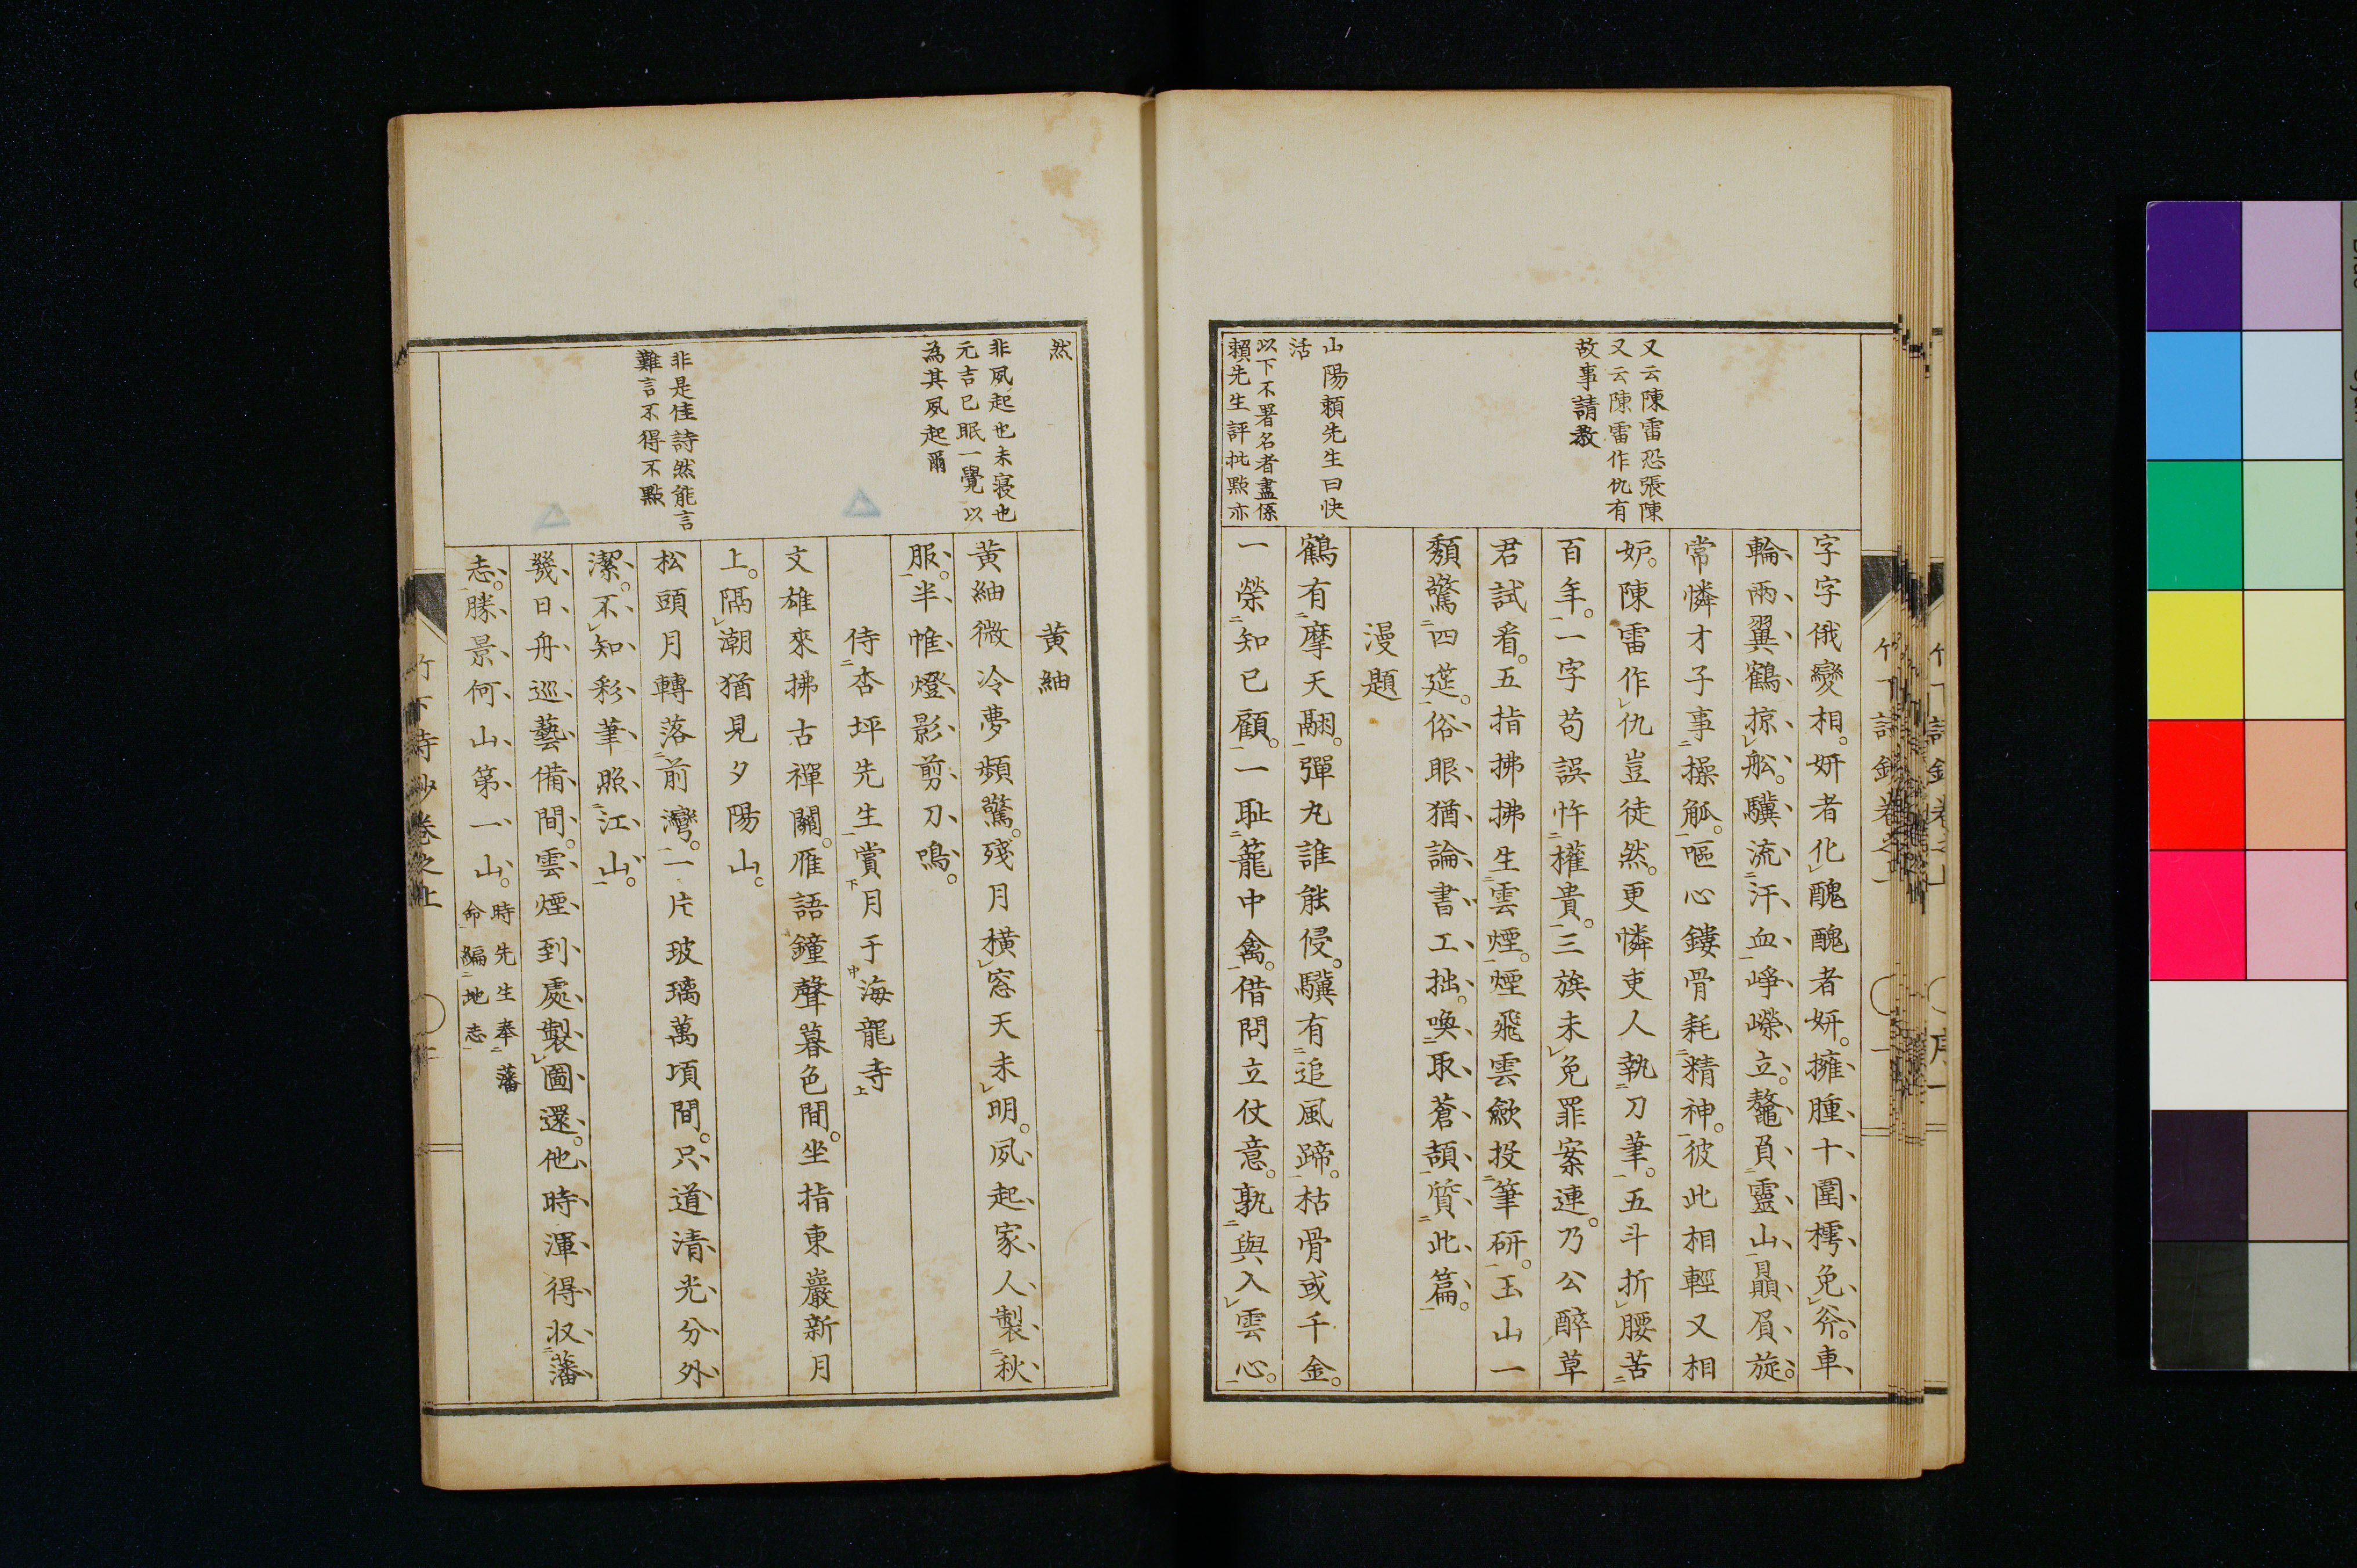 又云陳雷恐張陳
又云陳雷作仇有
故事請教
山陽賴先生曰快
活
以下不署名者盡係
賴先生評批點亦
字字俄變相。妍者化醜醜者妍。擁腫十圍樗免斧。車
輪兩翼鶴掠舩。驥流汗血崢嶸立。鼇負靈山贔屓旋。
常憐才子事操觚。嘔心鏤骨耗精神。彼此相輕又相
妒。陳雷作仇豈徒然。更憐吏人執刀筆。五斗折腰苦
百年。一字苟誤忤權貴。三族未免罪案連。乃公醉草
君試看。五指拂拂生雲煙。煙飛雲歛投筆研。玉山一
頹驚四筵。俗眼猶論書工拙。喚取蒼頡質此篇。
漫題
鶴有摩天翮。彈丸誰能侵。驥有追風蹄。枯骨或千金。
一榮知己顧。一耻籠中禽。借問立仗意。孰與入雲心。
然
非夙起也未寢也
元吉已眠一覺以
為其夙起爾
非是佳詩然能言
難言不得不點
黃紬
黃紬微冷夢頻驚。殘月橫窓天未明。夙起家人製秋
服。半帷燈影剪刀鳴。
侍杏坪先生賞月于海龍寺
文雄來拂古禪關。雁語鐘聲暮色間。坐指東巖新月
上。隔潮猶見夕陽山。
松頭月轉落前灣。一片玻璃萬頃間。只道清光分外
潔。不知彩筆照江山。
幾日舟巡藝備間。雲煙到處製圖還。他時渾得収藩
志。勝景何山第一山。
時先生奉藩
命編地志
竹下詩鈔卷之上